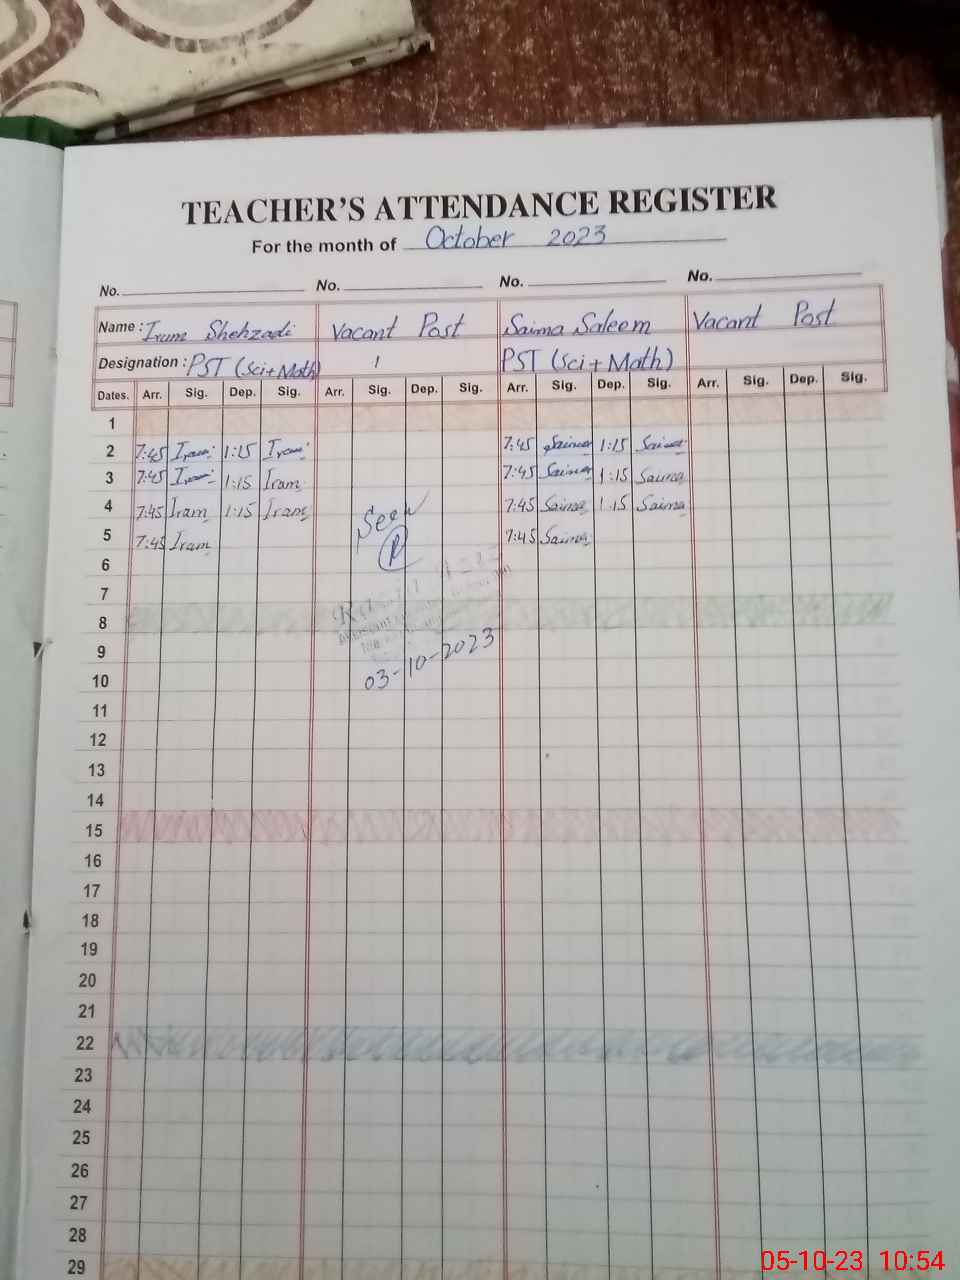 TEACHER'S ATTENDANCE REGISTER
For the month of October 2023
No. No. No. No.
Name : Irum Shehzadi Vacant Post Saima Saleem Vacant Post
Designation : PST (Sci+Math) 1 PST (Sci+Math)
Dates. Arr. Sig. Dep. Sig. Arr. Sig. Dep. Sig. Arr. Sig. Dep. Sig. Arr. Sig. Dep. Sig.
1
2 7:45 Iram 1:15 Iram 7:45 Saima 1:15 Saima
3 7:45 Iram 1:15 Iram 7:45 Saima 1:15 Saima
4 7:45 Iram 1:15 Iram Seen 7:45 Saima 1:15 Saima
5 7:45 Iram 7:45 Saima
6
7
8
9
10 03-10-2023
11
12
13
14
15
16
17
18
19
20
21
22
23
24
25
26
27
28
29
05-10-23 10:54